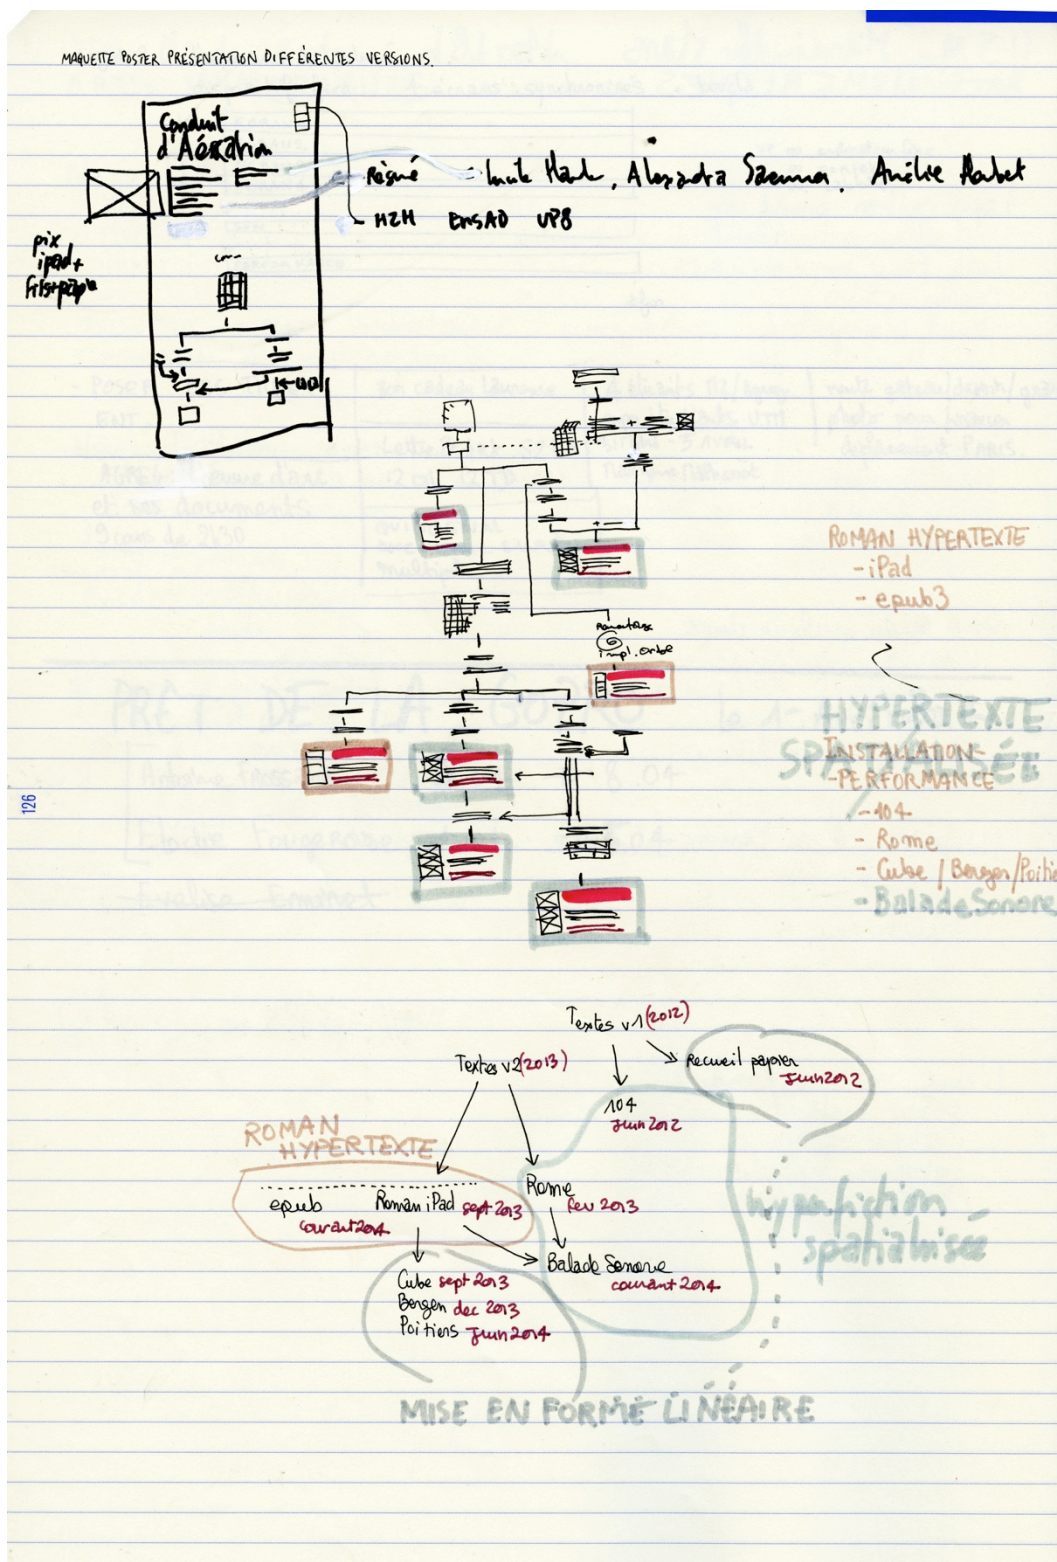 MAQUETTE POSTER PRÉSENTATION DIFFÉRENTES VERSIONS.
Conduit
d'Aération
Résumé
Alexandra Saemmer, Amélie
H2H ENSAD UP8
pix
ipad +
impl. orbe
ROMAN HYPERTEXTE
- iPad
- epub3
HYPERTEXTE
SPATIALISÉE
INSTALLATION-
-PERFORMANCE
- 104
- Rome
- Cube / Bergen / Poitie
- Balade Sonore
126
Textes v1 (2012)
Textes v2 (2013)
Recueil papier
Juin 2012
104
Juin 2012
ROMAN
HYPERTEXTE
epub
courant 2014
Roman iPad sept 2013
Rome
fev 2013
hyperfiction
spatialisée
Balade Sonore
courant 2014
Cube sept 2013
Bergen dec 2013
Poitiers Juin 2014
MISE EN FORME LINÉAIRE